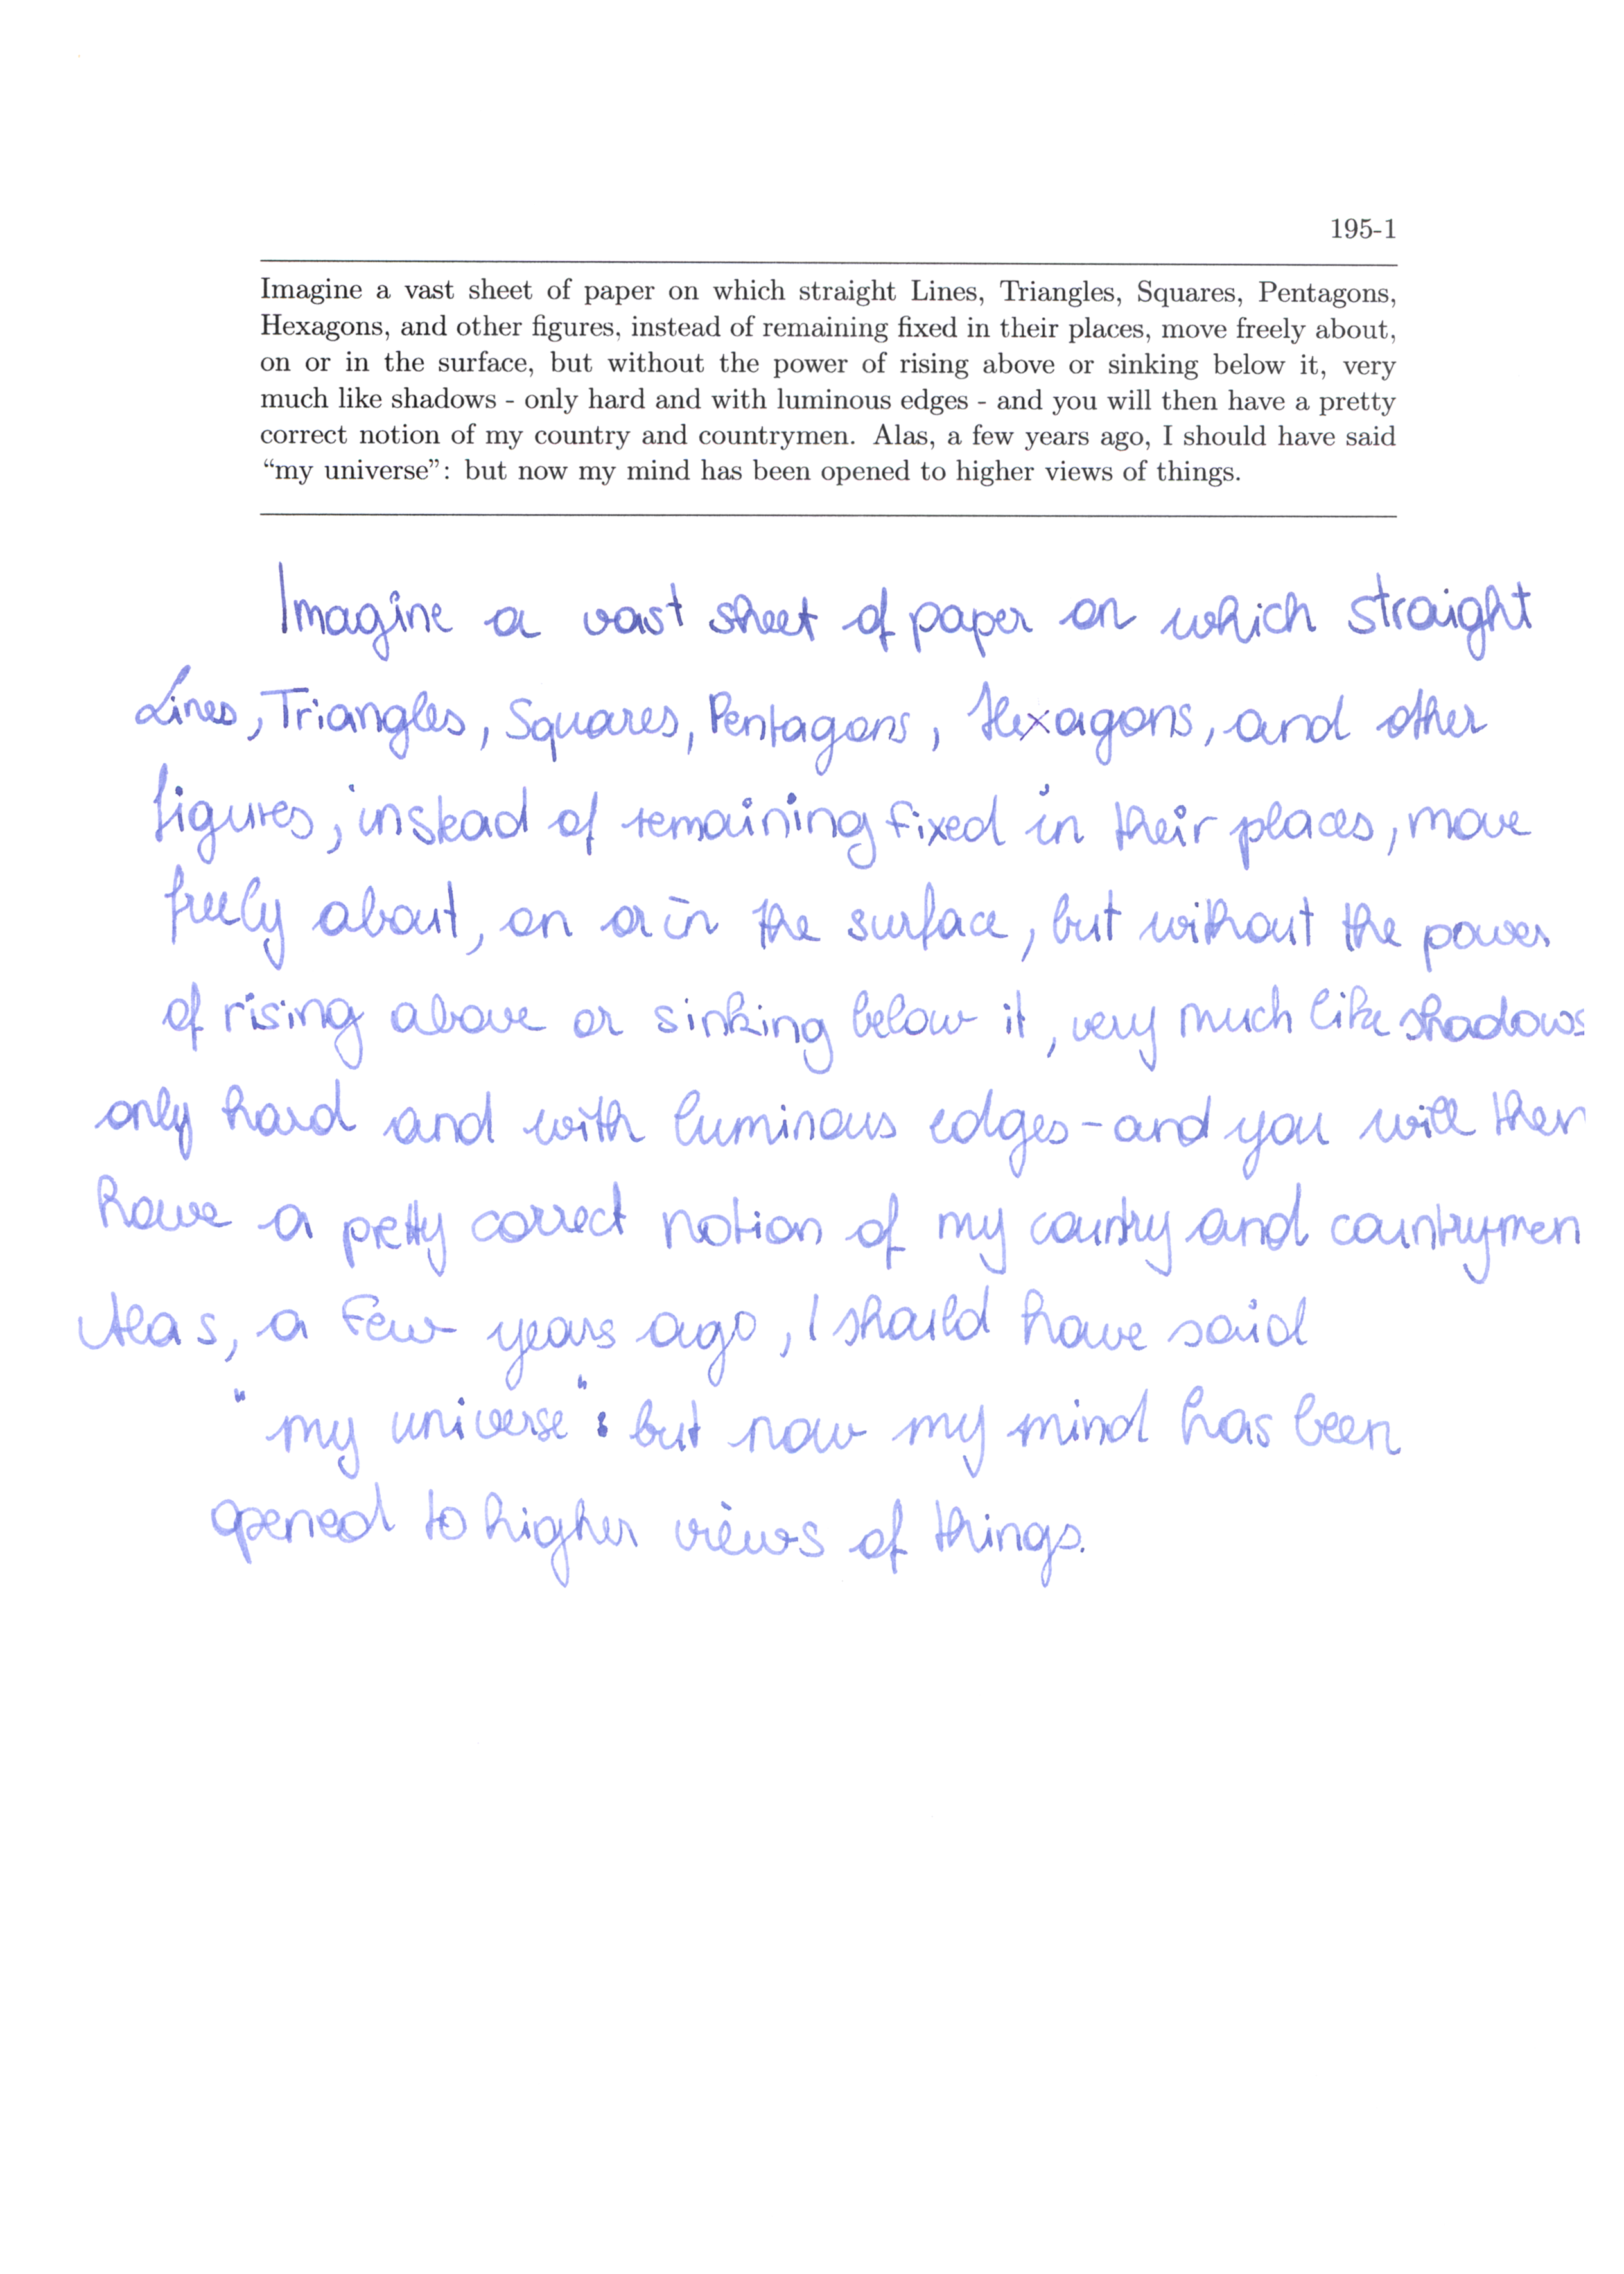 195-1
Imagine a vast sheet of paper on which straight Lines, Triangles, Squares, Pentagons,
Hexagons, and other figures, instead of remaining fixed in their places, move freely about,
on or in the surface, but without the power of rising above or sinking below it, very
much like shadows - only hard and with luminous edges - and you will then have a pretty
correct notion of my country and countrymen. Alas, a few years ago, I should have said
“my universe”: but now my mind has been opened to higher views of things.
Imagine a vast sheet of paper on which straight
Lines, Triangles, Squares, Pentagons, Hexagons, and other
figures, instead of remaining fixed in their places, move
freely about, on or in the surface, but without the power
of rising above or sinking below it, very much like shadows
only hard and with luminous edges - and you will then
have a pretty correct notion of my country and countrymen
Alas, a few years ago, I should have said
"my universe": but now my mind has been
opened to higher views of things.